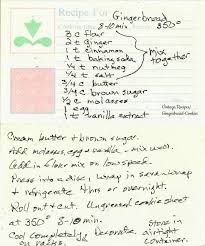 Recipe For Gingerbread
8-10 min 350°
3 c flour
2 t ginger
1 t cinnamon
1 t baking soda
¼ t nutmeg
¼ t salt
Mix together
3/4 c butter
3/4 c brown sugar
½ c molasses
1 egg
1 t vanilla extract
Cottage Recipes/
Gingerbread Cookies
Cream butter + brown sugar.
Add molasses, egg + vanilla - mix well.
Add in flour mix on low speed.
Press into a disc, wrap in saran wrap
+ refrigerate 4 hrs or overnight.
Roll out + cut. Ungreased cookie sheet
at 350° 8-10 min.
Cool completely on racks. Decorate. Store in airtight container.